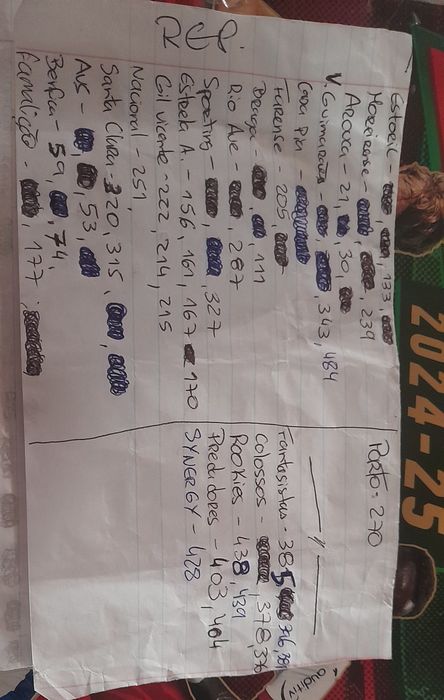 Estoril - 133,
Moreirense - 239
Arouca - 21, 30,
V. Guimarães - 343, 484
Casa Pia -
Farense - 205,
Braga - 111
Rio Ave - 287
Sporting - 327
Estrela A. - 156, 161, 167 170
Gil Vicente - 222, 214, 215
Nacional - 251,
Santa Clara - 320, 315,
AVS - 53,
Benfica - 59, 74,
Famalicão - , 177,
Porto - 270
Fantasistas - 385
Colossos - , 378,
Rookies - 438, 439
Predadores - 403, 404
SYNERGY - 428
2024-25